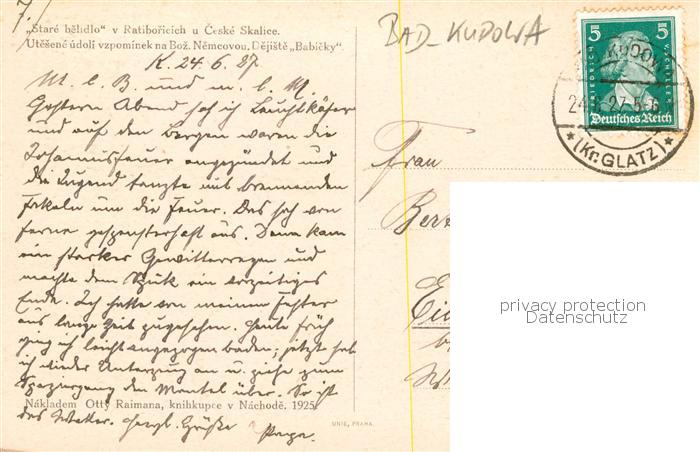 7./
„Staré bělidlo" v Ratibořicích u České Skalice.
Utěšené údolí vzpomínek na Bož. Němcovou. Dějiště „Babičky".
BAD-KUDOWA
K. 24.6.27.
M. l. B. und m. l. M.
Gestern Abend sah ich Leuchtkäfer
und auf den Bergen waren die
Johannisfeuer angezündet und
die Jugend tanzte mit brennenden
Fakeln um die Feuer. Das sah von
ferne gespensterhaft aus. Dann kam
ein starker Gewitterregen und
machte dem Spuk ein vorzeitiges
Ende. Ich hatte von meinem Fenster
aus lange Zeit zugesehen. Heute früh
ging ich leicht angezogen baden; jetzt hab
ich wieder Unterzeug an u. ziehe zum
Spaziergang den Mantel über. So ist
Nákladem Otty Raimana, knihkupce v Náchodě. 1925.
das Wetter. Herzl. Grüße Papa.
UNIE, PRAHA.
5 5
FRIEDRICH V. SCHILLER
Deutsches Reich
KUDOWA
24.6.27.5-6
★ (Kr. GLATZ) ★
Frau
privacy protection
Datenschutz